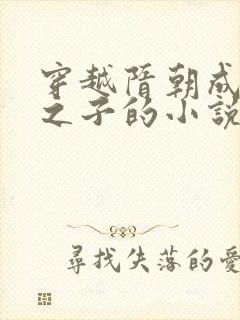 穿越隋朝成
之子的小説
尋找失落的愛